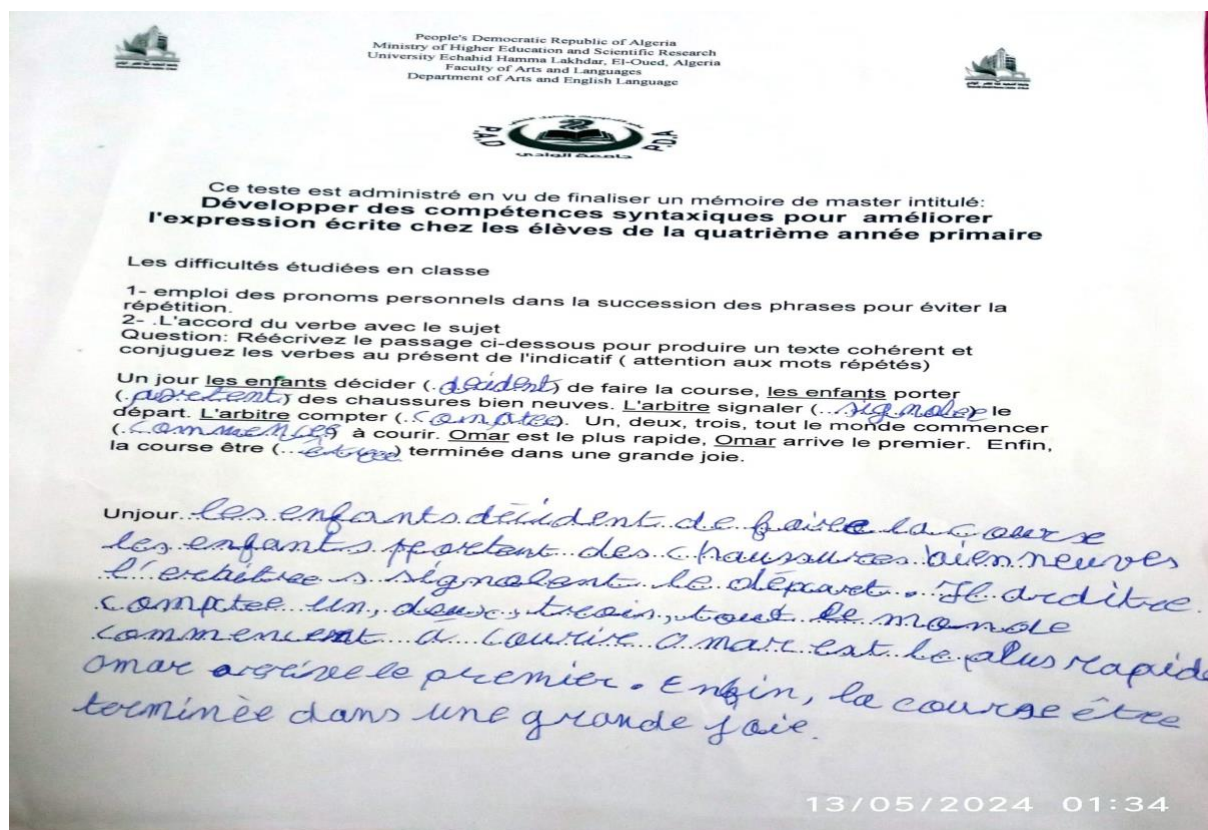 People's Democratic Republic of Algeria
Ministry of Higher Education and Scientific Research
University Echahid Hamma Lakhdar, El-Oued, Algeria
Faculty of Arts and Languages
Department of Arts and English Language
P.A.D P.D.A
جامعة الوادي
Ce teste est administré en vu de finaliser un mémoire de master intitulé:
Développer des compétences syntaxiques pour améliorer
l'expression écrite chez les élèves de la quatrième année primaire
Les difficultés étudiées en classe
1- emploi des pronoms personnels dans la succession des phrases pour éviter la
répétition.
2- .L'accord du verbe avec le sujet
Question: Réécrivez le passage ci-dessous pour produire un texte cohérent et
conjuguez les verbes au présent de l'indicatif ( attention aux mots répétés)
Un jour les enfants décider (.décident) de faire la course, les enfants porter
(.portent.) des chaussures bien neuves. L'arbitre signaler (...) le
départ. L'arbitre compter (.). Un, deux, trois, tout le monde commencer
(.) à courir. Omar est le plus rapide, Omar arrive le premier. Enfin,
la course être (...) terminée dans une grande joie.
Unjour..les enfants décident de faire la course
les enfants portent des chaussures bien neuves
signalent le départ. Il
un, deux, trois, tout le monde
commencent a courire omar est le plus rapide
omar le premier. Enfin, la course être
terminèe dans une grande joie.
13/05/2024 01:34